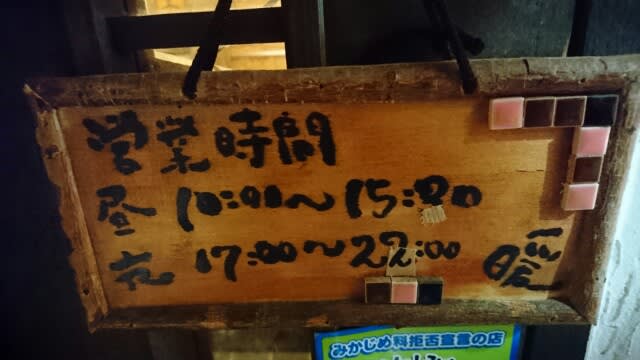 営業時間
昼 10:00〜15:30
夜 17:00〜22:00
暖
みかじめ料拒否宣言の店